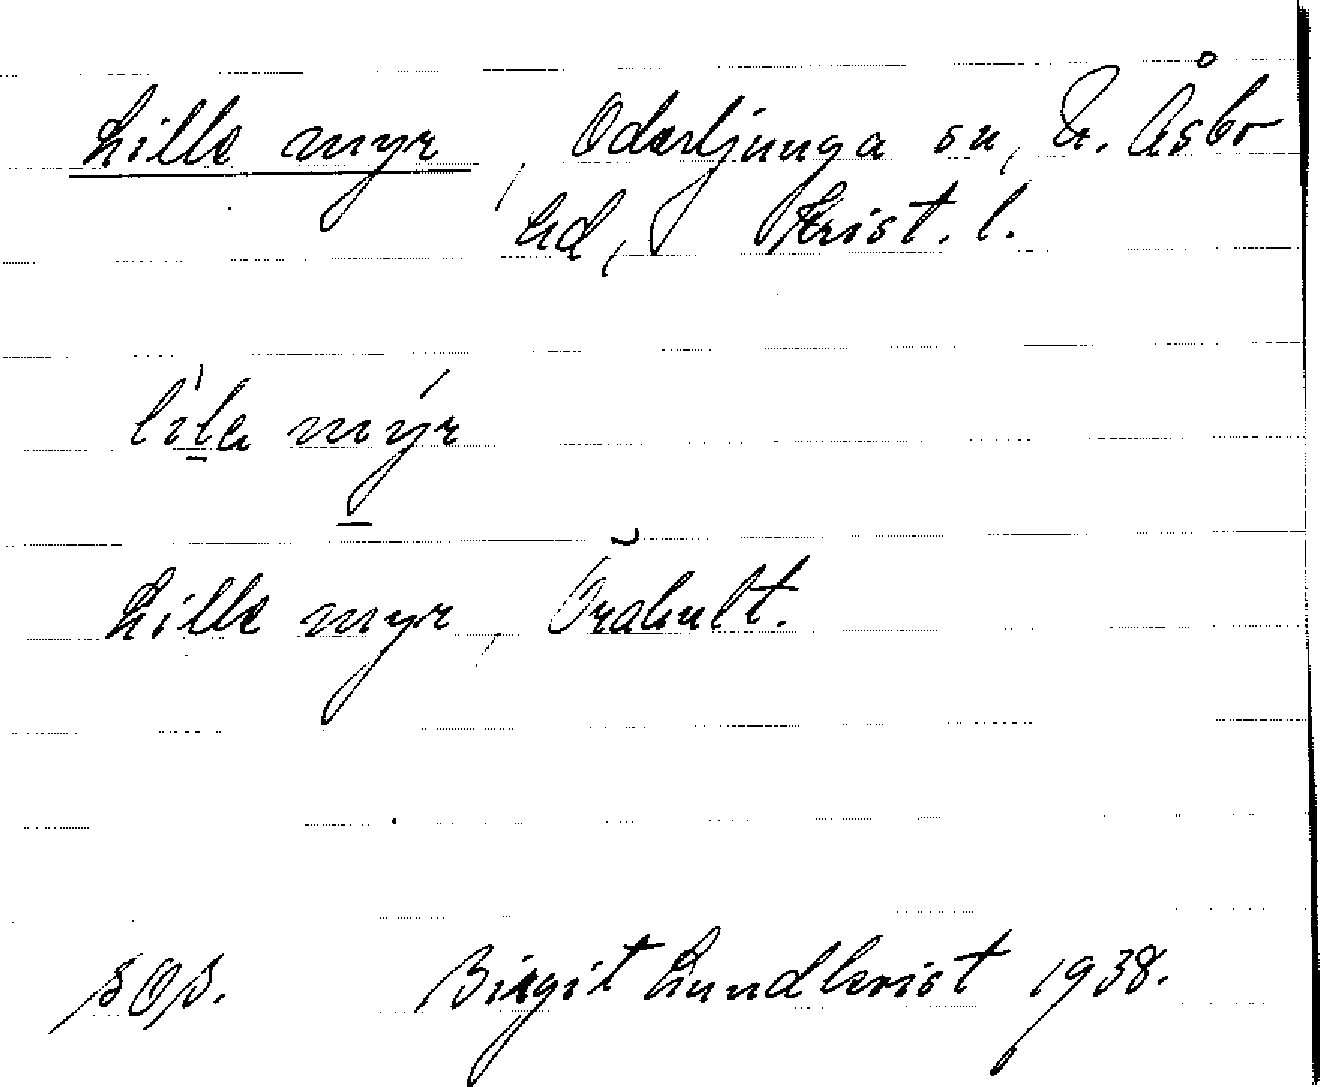 Lille myr, Oderljunga sn, N. Åsbo
hd, Krist. l.
lila mýr
Lille myr, Örahult.
Birgit Lundkvist 1938.